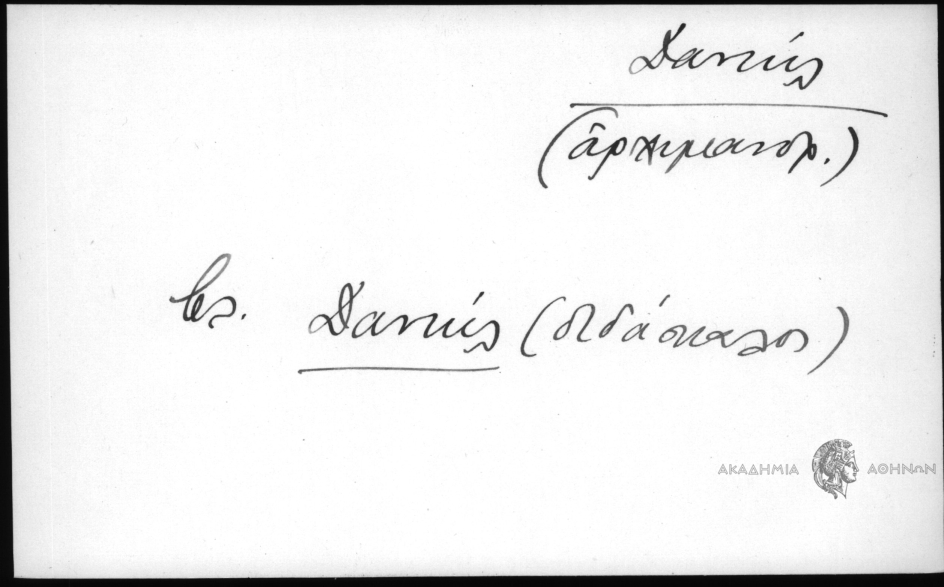 Δανιήλ
(ἀρχιμανδρ.)
βλ. Δανιήλ (διδάσκαλος)
ΑΚΑΔΗΜΙΑ ΑΘΗΝΩΝ